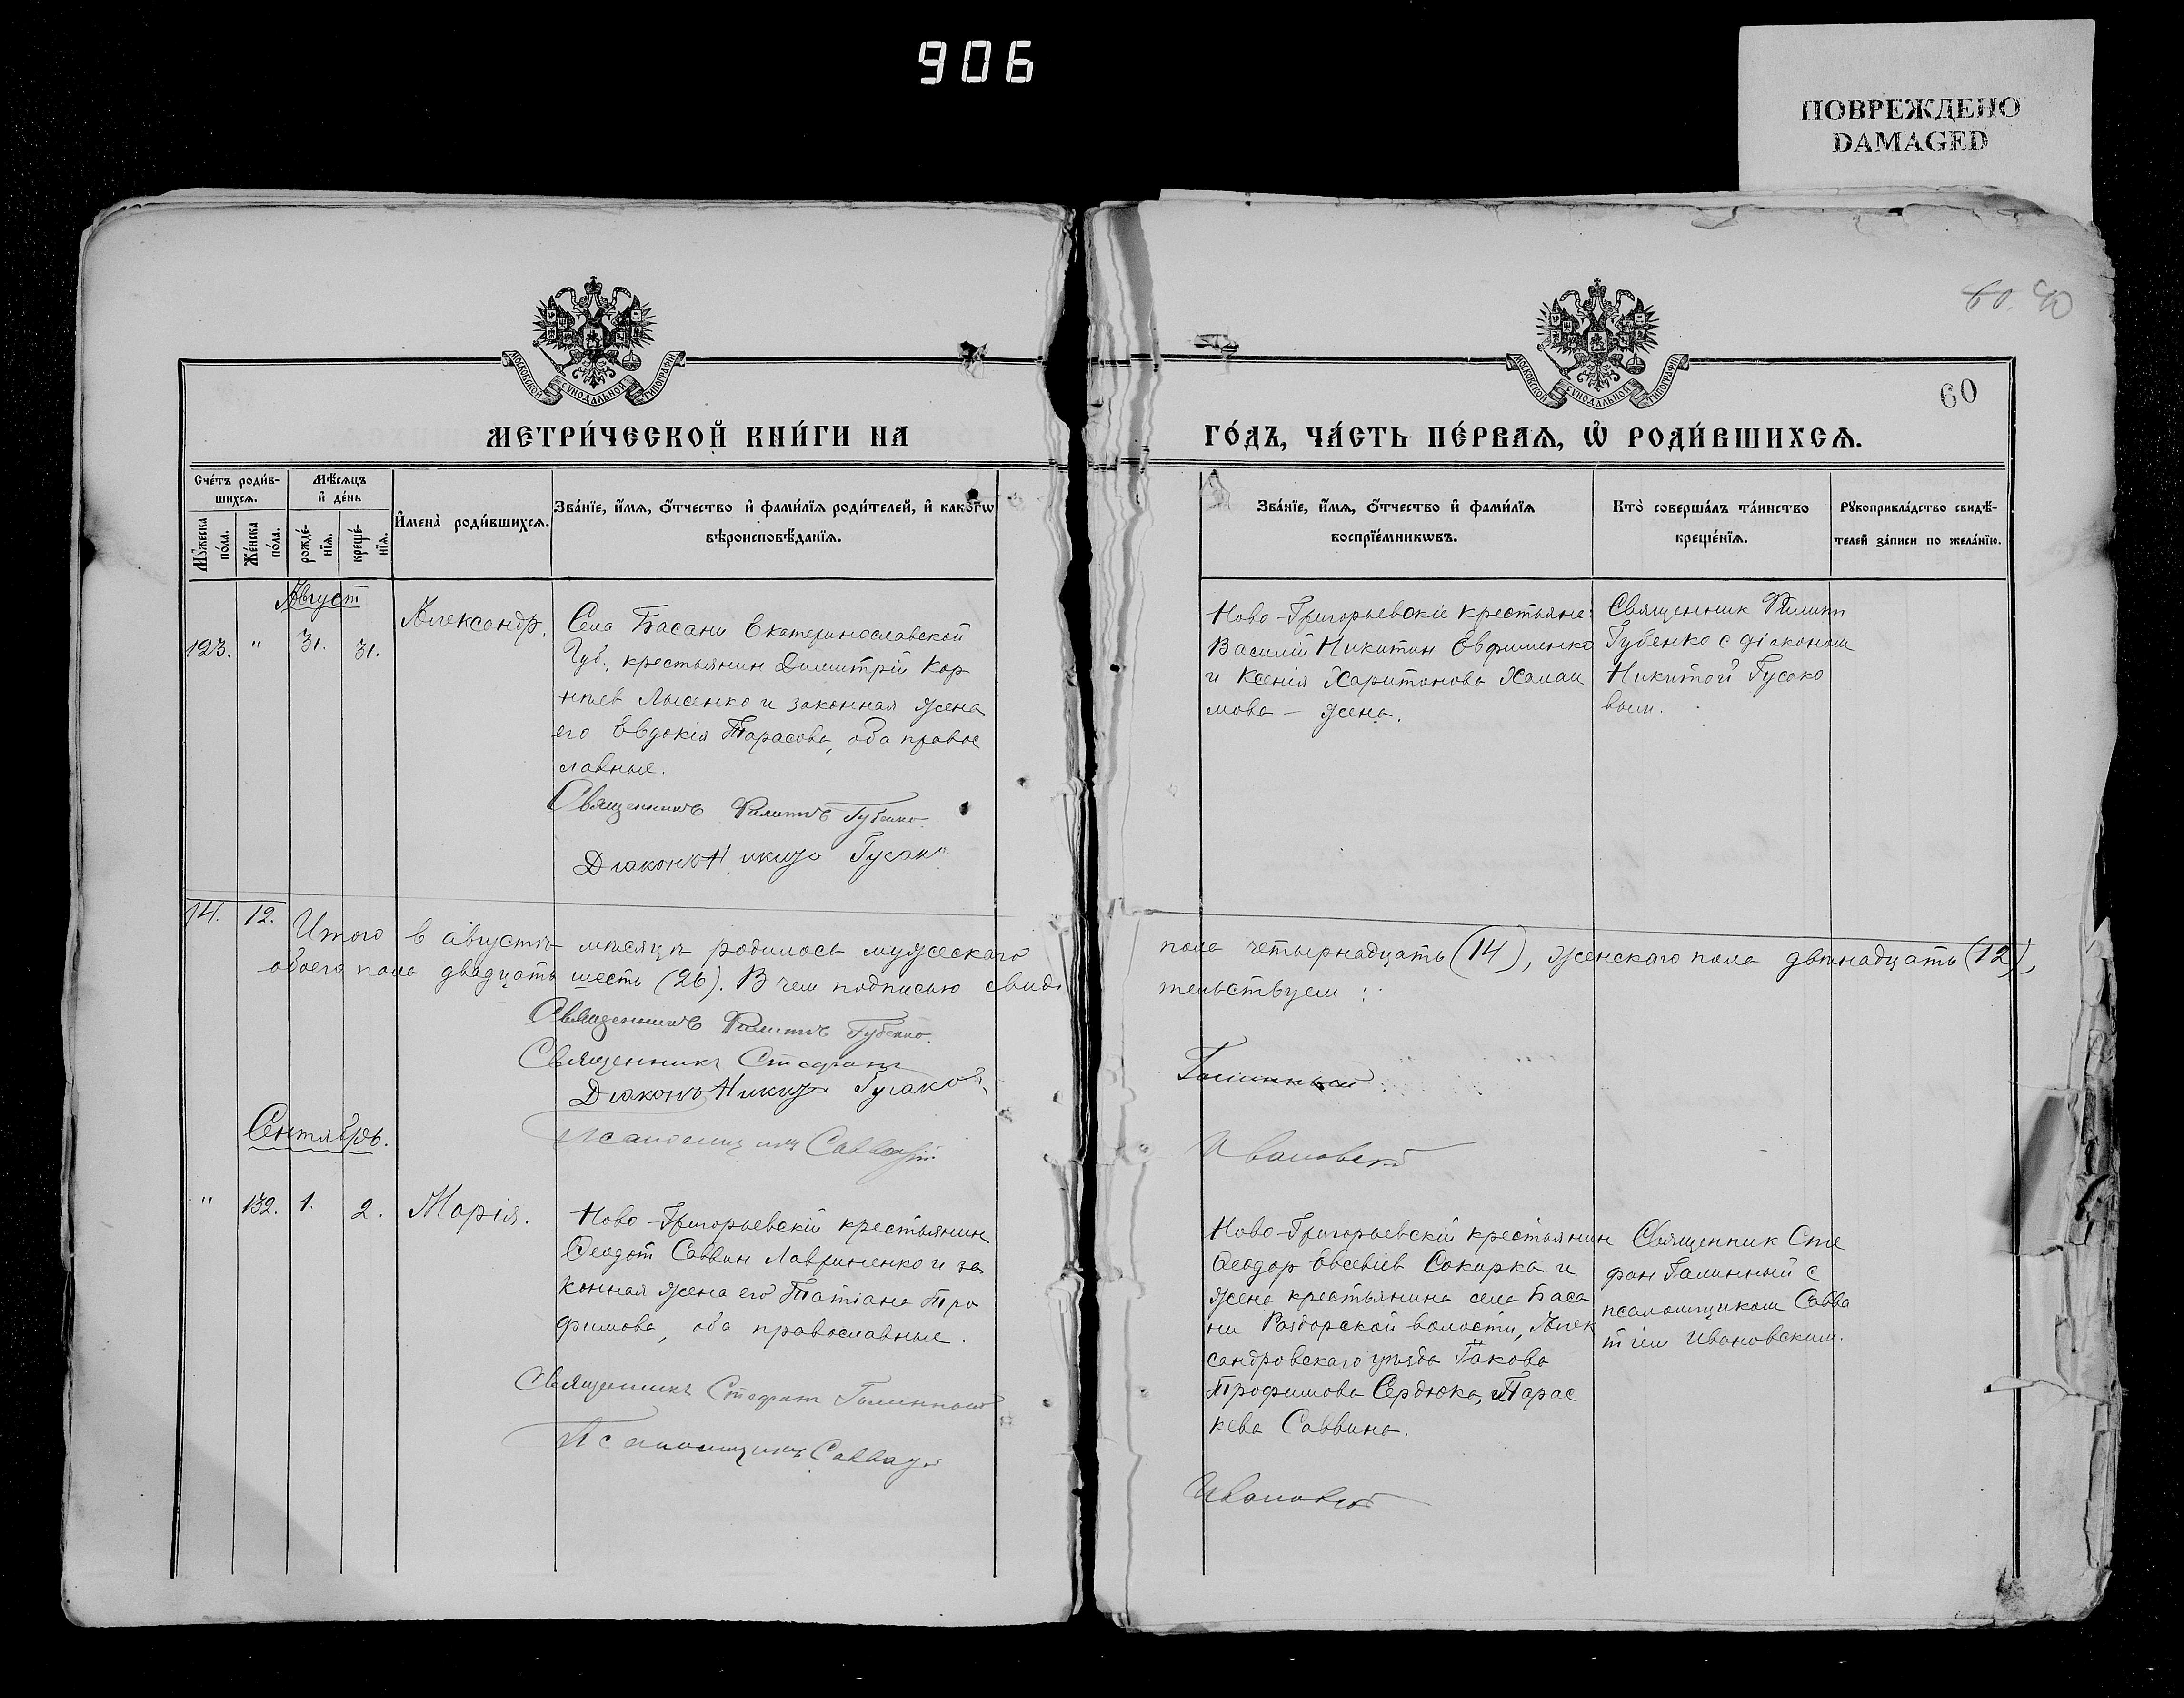 906
ПОВРЕЖДЕНО
DAMAGED
60. 90
60
МОСКОВСКОЙ СУНОДАЛЬНОЙ ТИПОГРАФІИ
МОСКОВСКОЙ СУНОДАЛЬНОЙ ТИПОГРАФІИ
МЕТРИ́ЧЕСКОЙ КНИ́ГИ НА
ГО́ДЪ, ЧА́СТЬ ПЕ́РВАѦ, Ѡ҆ РОДИ́ВШИХСѦ.
Сче́тъ роди́в-
шихсѧ.
Мꙋ́жеска по́ла.
Же́нска по́ла.
Мѣ́сѧцъ
и҆ де́нь
рожде́-
нїѧ.
креще́-
нїѧ.
И҆мена̀ роди́вшихсѧ.
Зва́нїе, и҆́мѧ, ѻ҆́тчество и҆ фами́лїѧ роди́телей, и҆ како́гѡ
вѣроисповѣ́данїѧ.
Зва́нїе, и҆́мѧ, ѻ҆́тчество и҆ фами́лїѧ
воспрїе́мникѡвъ.
Кто̀ соверша́лъ та́инство
креще́нїѧ.
Рꙋкоприкла́дство свидѣ́-
телей за́писи по жела́нїю.
Август
123. " 31. 31.
Александр.
Села Басани Екатеринославской
Губ., крестьянин Димитрій Кор
ніев Лысенко и законная жена
его Евдокія Тарасова, оба право
славные.
Священникъ Филиппъ Губенко.
Діаконъ Никита Гусаков
Ново-Григорьевскіе крестьяне:
Василій Никитин Евфименко
и Ксенія Харитонова Халаи
мова – жена.
Священник Филипп
Губенко с діаконом
Никитой Гусако
вым.
14. 12. Итого в августѣ мѣсяцѣ родилось мужескаго
пола четырнадцать (14), женскаго пола двѣнадцать (12),
обоего пола двадцать шесть (26). В чем подписью свидѣ
тельствуем:
Священникъ Филиппъ Губенко.
Священникъ Стефанъ
Галинный.
Діаконъ Никита Гусаков
Псаломщикъ Савватій
Ивановскій
Сентябрь.
" 132. 1. 2. Марія.
Ново-Григорьевскій крестьянин
Ѳеодот Саввин Лавриненко и за
конная жена его Татіана Тро
фимова, оба православные.
Священникъ Стефанъ Галинный
Псаломщикъ Савватій
Ново-Григорьевскій крестьянин
Ѳеодор Евсевіев Сокирка и
жена крестьянина села Баса
ни Раздорской волости, Алек
сандровскаго уѣзда Іакова
Трофимова Сердюка, Парас
кева Саввина.
Ивановскій
Священник Сте
фан Галинный с
псаломщиком Савва
тіем Ивановским.